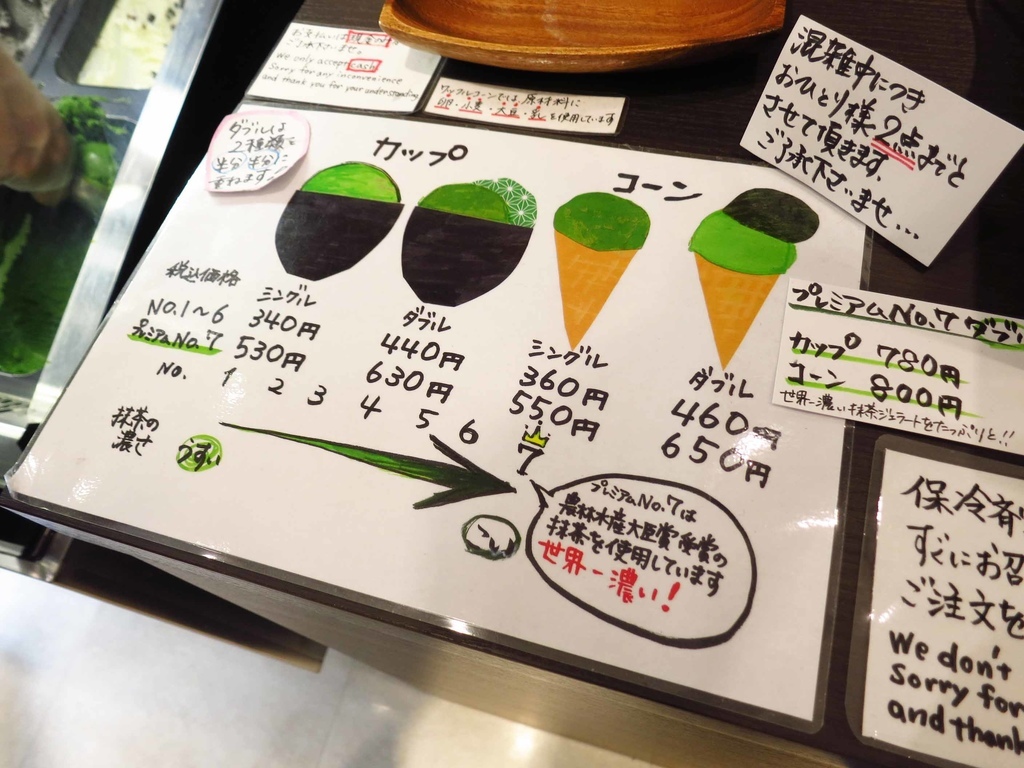 お支払いは現金のみ
ご了承下さいませ。
We only accept cash
Sorry for any inconvenience
and thank you for your understanding
ワッフルコーンでは原材料に
卵・小麦・大豆・乳を使用しています
混雑中につき
おひとり様2点までと
させて頂きます。
ご了承下さいませ...
ダブルは
2種類を
半分半分に
重ねます!
カップ
コーン
税込価格
シングル
ダブル
シングル
ダブル
NO.1~6 340円 440円 360円 460円
プレミアムNo.7 530円 630円 550円 650円
No. 1 2 3 4 5 6 7
抹茶の
濃さ
うすい
こい
プレミアムNo.7は
農林水産大臣賞受賞の
抹茶を使用しています
世界一濃い!
プレミアムNo.7 ダブル
カップ 780円
コーン 800円
世界一濃い抹茶ジェラートをたっぷりと!!
保冷剤
すぐにお召
ご注文を
We don't
Sorry for
and thank